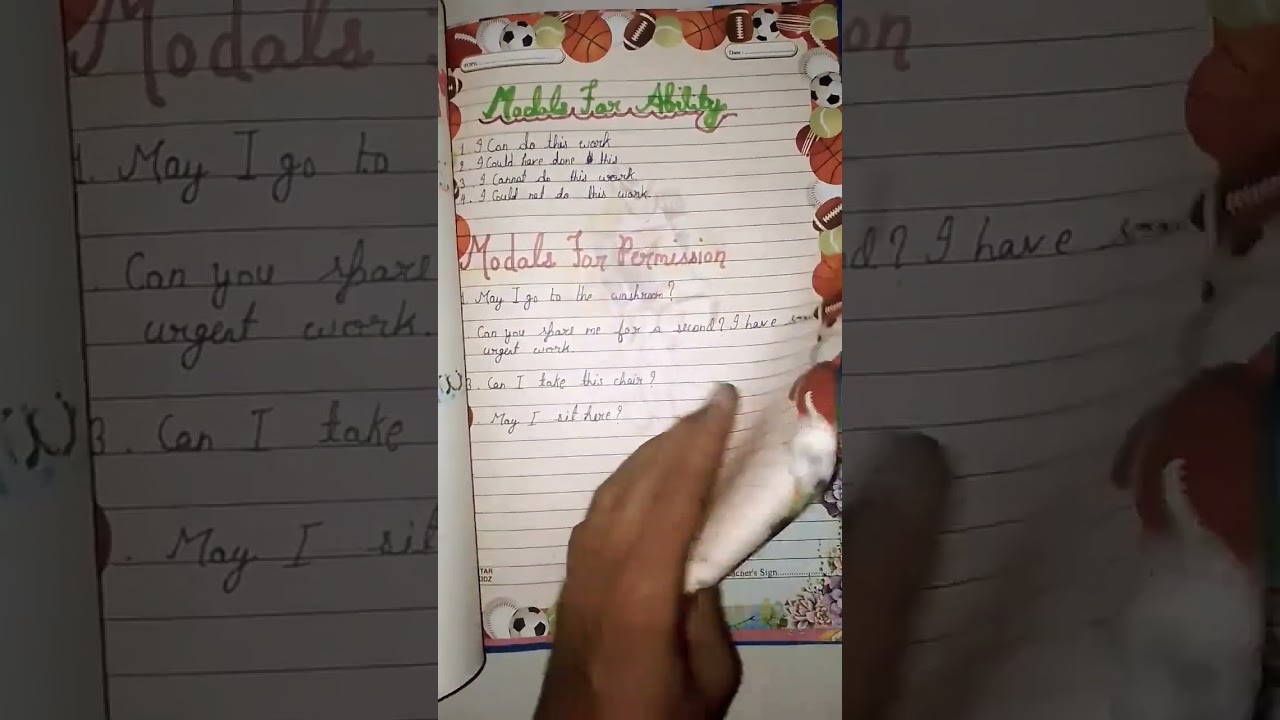 TOPIC
Date :
Modals For Ability
1. I Can do this work
2. I Could have done this.
3. I Cannot do this work.
4. I Could not do this work.
Modals For Permission
1. May I go to the washroom?
Can you spare me for a second? I have
urgent work.
3. Can I take this chair?
. May I sit here?
TAR
KIDZ
acher's Sign